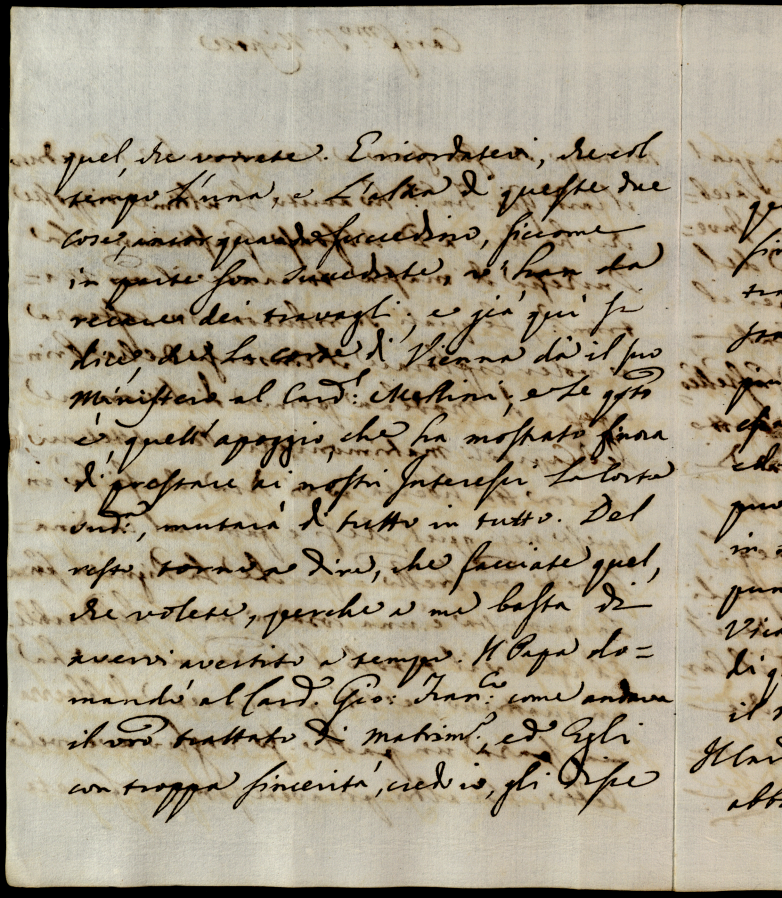 quel, che vorrete. E ricordatevi, che col
tempo l'una, e l'altra di queste due
cose, ancor quando succedino, siccome
in parte son succedute, vi han da
recare dei travagli; e già qui si
dice, che la corte di Vienna dà il suo
Ministero al Card.l Mellini; e se q.sto
è, quell'apoggio, che ha mostrato finora
di prestare ai nostri Interessi la Corte
sud.a, mutarà di tutto in tutto. Del
resto, torno a dire, che facciate quel,
che volete, perche a me basta di
avervi avertito a tempo. Il Papa do=
mandò al Card. Gio: Fran.co come andava
il vro trattato di matrim.o, ed Egli
con troppa sincerità, cred'io, gli disse